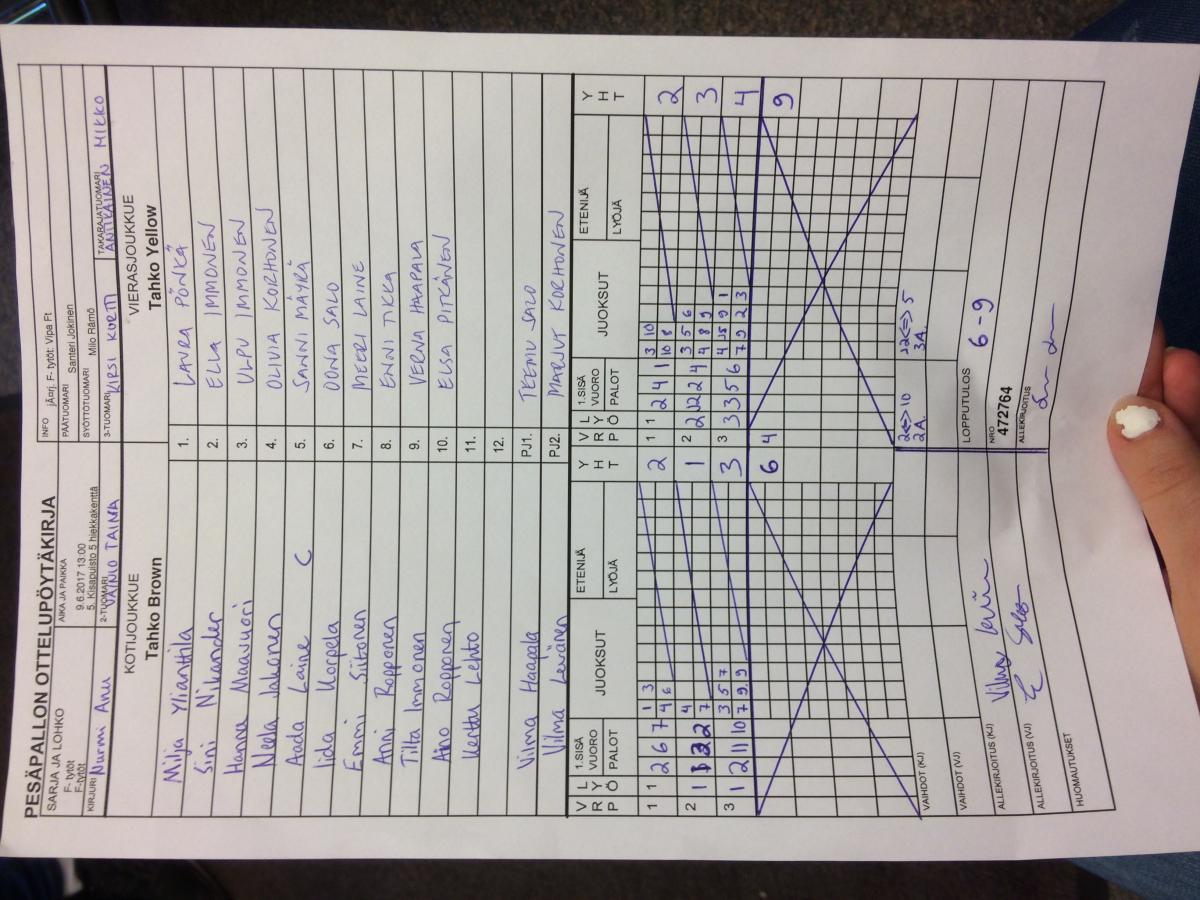 PESÄPALLON OTTELUPÖYTÄKIRJA
SARJA JA LOHKO
F- tytöt
F-tytöt
AIKA JA PAIKKA
9.6.2017 13:00
5. Kisapuisto 5 hiekkakenttä
INFO
jÄorj. F- tytöt: Vipa Ft
PÄÄTUOMARI
Santeri Jokinen
SYÖTTÖTUOMARI
Milo Rämö
KIRJURI Nurmi Anu
2-TUOMARI VAINIO TAINA
3-TUOMARI KIRSI KORTTI
TAKARAJATUOMARI ANTIKAINEN MIKKO
KOTIJOUKKUE
Tahko Brown
VIERASJOUKKUE
Tahko Yellow
Milja Ylianttila 1. LAURA PÖNKÄ
Sini Nikander 2. ELLA IMMONEN
Hanna Maavuori 3. ULPU IMMONEN
Neela Jakonen 4. OLIVIA KORHONEN
Aada Laine C 5. SANNI MÄYRÄ
Iida Korpela 6. OONA SALO
Emmi Siitonen 7. MEERI LAINE
Anni Ropponen 8. ENNI TIKKA
Tilta Immonen 9. VERNA HAAPALA
Aino Ropponen 10. ELSA PITKÄNEN
Verttu Lehto 11.
12.
Vilma Haapala PJ1. TEEMU SALO
Vilma Leivänen PJ2. MARJUT KORHONEN
V R P L Y Ö 1.SISÄ VUORO PALOT JUOKSUT ETENIJÄ LYÖJÄ Y H T
V R P L Y Ö 1.SISÄ VUORO PALOT JUOKSUT ETENIJÄ LYÖJÄ Y H T
1 1 2 6 7 1 3 2
4 6
1 1 2 4 1 3 10 2
10 8
2 1 4 1
7
2 4 3 5 6 3
4 8 9
3 1 2 11 10 3 5 7 3
7 9 9
3 3 3 5 6 4 9 1 4
7 9 2 3
6
4 9
VAIHDOT (KJ)
2<=>10
2A.
12<=>5
3A.
VAIHDOT (VJ)
LOPPUTULOS
6 - 9
ALLEKIRJOITUS (KJ)
NRO
472764
ALLEKIRJOITUS (VJ)
ALLEKIRJOITUS
HUOMAUTUKSET